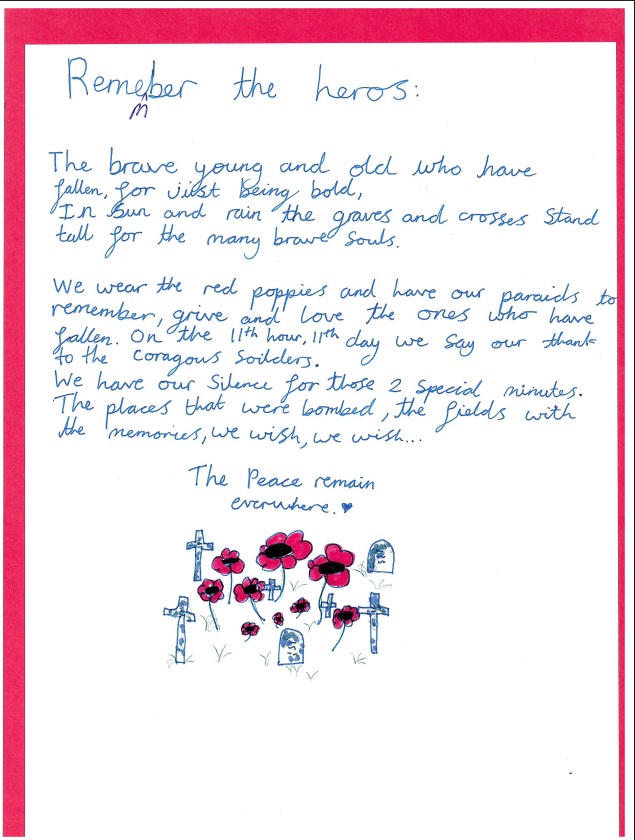 Remember the heros:
The brave young and old who have
fallen, for just being bold,
In Sun and rain the graves and crosses Stand
tall for the many brave Souls.
We wear the red poppies and have our paraids to
remember, grive and love the ones who have
fallen. On the 11th hour, 11th day we say our thanks
to the coragous Soilders.
We have our Silence for those 2 Special minutes.
The places that were bombed, the fields with
the memories, we wish, we wish...
The Peace remain
everwhere.♥